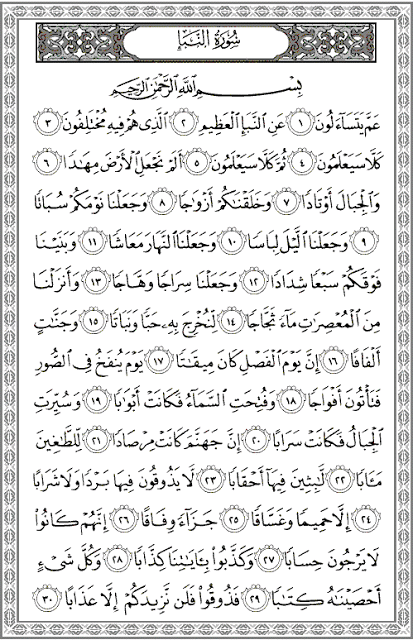 سُورَةُ النَّبَإِ
بِسْمِ اللَّهِ الرَّحْمَٰنِ الرَّحِيمِ
عَمَّ يَتَسَاءَلُونَ ١ عَنِ النَّبَإِ الْعَظِيمِ ٢ الَّذِي هُمْ فِيهِ مُخْتَلِفُونَ ٣
كَلَّا سَيَعْلَمُونَ ٤ ثُمَّ كَلَّا سَيَعْلَمُونَ ٥ أَلَمْ نَجْعَلِ الْأَرْضَ مِهَٰدًا ٦
وَالْجِبَالَ أَوْتَادًا ٧ وَخَلَقْنَٰكُمْ أَزْوَٰجًا ٨ وَجَعَلْنَا نَوْمَكُمْ سُبَاتًا
٩ وَجَعَلْنَا الَّيْلَ لِبَاسًا ١٠ وَجَعَلْنَا النَّهَارَ مَعَاشًا ١١ وَبَنَيْنَا
فَوْقَكُمْ سَبْعًا شِدَادًا ١٢ وَجَعَلْنَا سِرَاجًا وَهَّاجًا ١٣ وَأَنزَلْنَا
مِنَ الْمُعْصِرَٰتِ مَاءً ثَجَّاجًا ١٤ لِّنُخْرِجَ بِهِ حَبًّا وَنَبَاتًا ١٥ وَجَنَّٰتٍ
أَلْفَافًا ١٦ إِنَّ يَوْمَ الْفَصْلِ كَانَ مِيقَٰتًا ١٧ يَوْمَ يُنفَخُ فِي الصُّورِ
فَتَأْتُونَ أَفْوَاجًا ١٨ وَفُتِحَتِ السَّمَاءُ فَكَانَتْ أَبْوَٰبًا ١٩ وَسُيِّرَتِ
الْجِبَالُ فَكَانَتْ سَرَابًا ٢٠ إِنَّ جَهَنَّمَ كَانَتْ مِرْصَادًا ٢١ لِّلطَّٰغِينَ
مَـَٔابًا ٢٢ لَّٰبِثِينَ فِيهَا أَحْقَابًا ٢٣ لَّا يَذُوقُونَ فِيهَا بَرْدًا وَلَا شَرَابًا
٢٤ إِلَّا حَمِيمًا وَغَسَّاقًا ٢٥ جَزَاءً وِفَاقًا ٢٦ إِنَّهُمْ كَانُوا
لَا يَرْجُونَ حِسَابًا ٢٧ وَكَذَّبُوا بِـَٔايَٰتِنَا كِذَّابًا ٢٨ وَكُلَّ شَيْءٍ
أَحْصَيْنَٰهُ كِتَٰبًا ٢٩ فَذُوقُوا فَلَن نَّزِيدَكُمْ إِلَّا عَذَابًا ٣٠